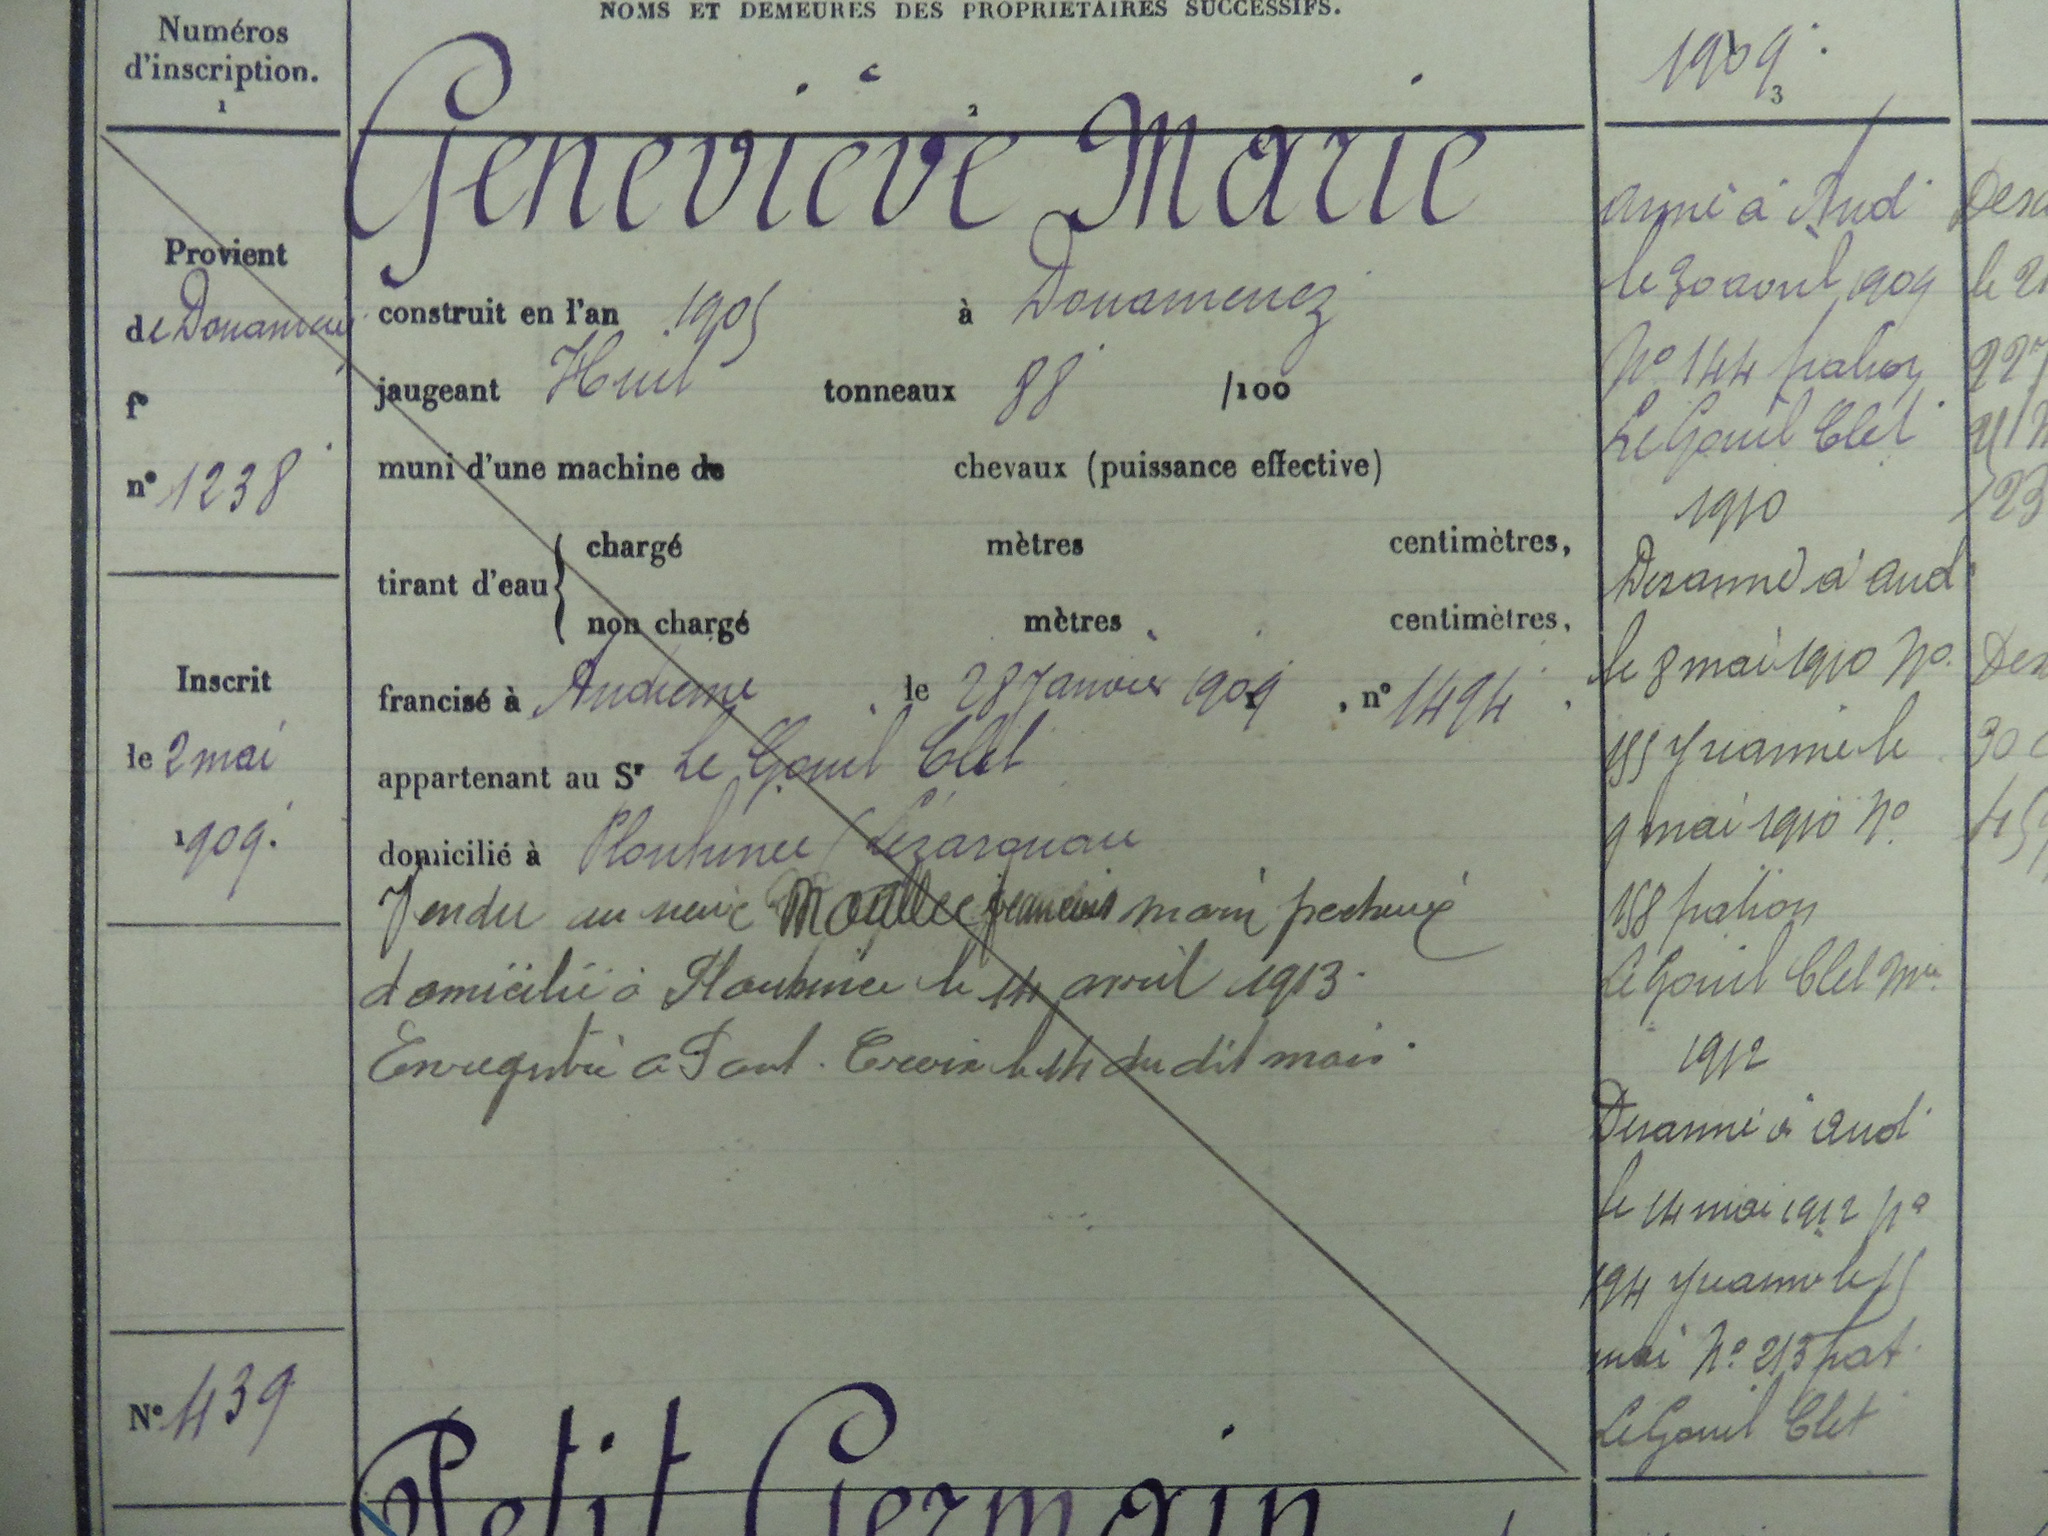 NOMS ET DEMEURES DES PROPRIETAIRES SUCCESSIFS.
Numéros
d'inscription.
1
2
1909
3
Geneviève Marie
Provient
de Douarnenez
f°
n° 1238
construit en l'an 1905 à Douarnenez
jaugeant Huit tonneaux 88 /100
muni d'une machine de chevaux (puissance effective)
tirant d'eau
chargé mètres centimètres,
non chargé mètres centimètres,
francisé à Audierne, le 28 Janvier 1909, n° 1494,
appartenant au Sr Le Gouil Clet
domicilié à Plouhinec
Vendu au marin pecheur
domicilié à Plouhinec le 14 avril 1913.
Enregistré a Pont-Croix le 14 du dit mois.
Inscrit
le 2 mai
1909.
N° 439
Petit Germain
armé à Aud
le 30 avril 1909
N° 144 patron
Le Gouil Clet
1910
Desarmé à aud
le 8 mai 1910 N°
155 Rearmé le
9 mai 1910 N°
158 patron
Le Gouil Clet
1912
Desarmé à aud
le 14 mai 1912 N°
194 Rearmé le 15
mai N° 213 pat
Le Gouil Clet